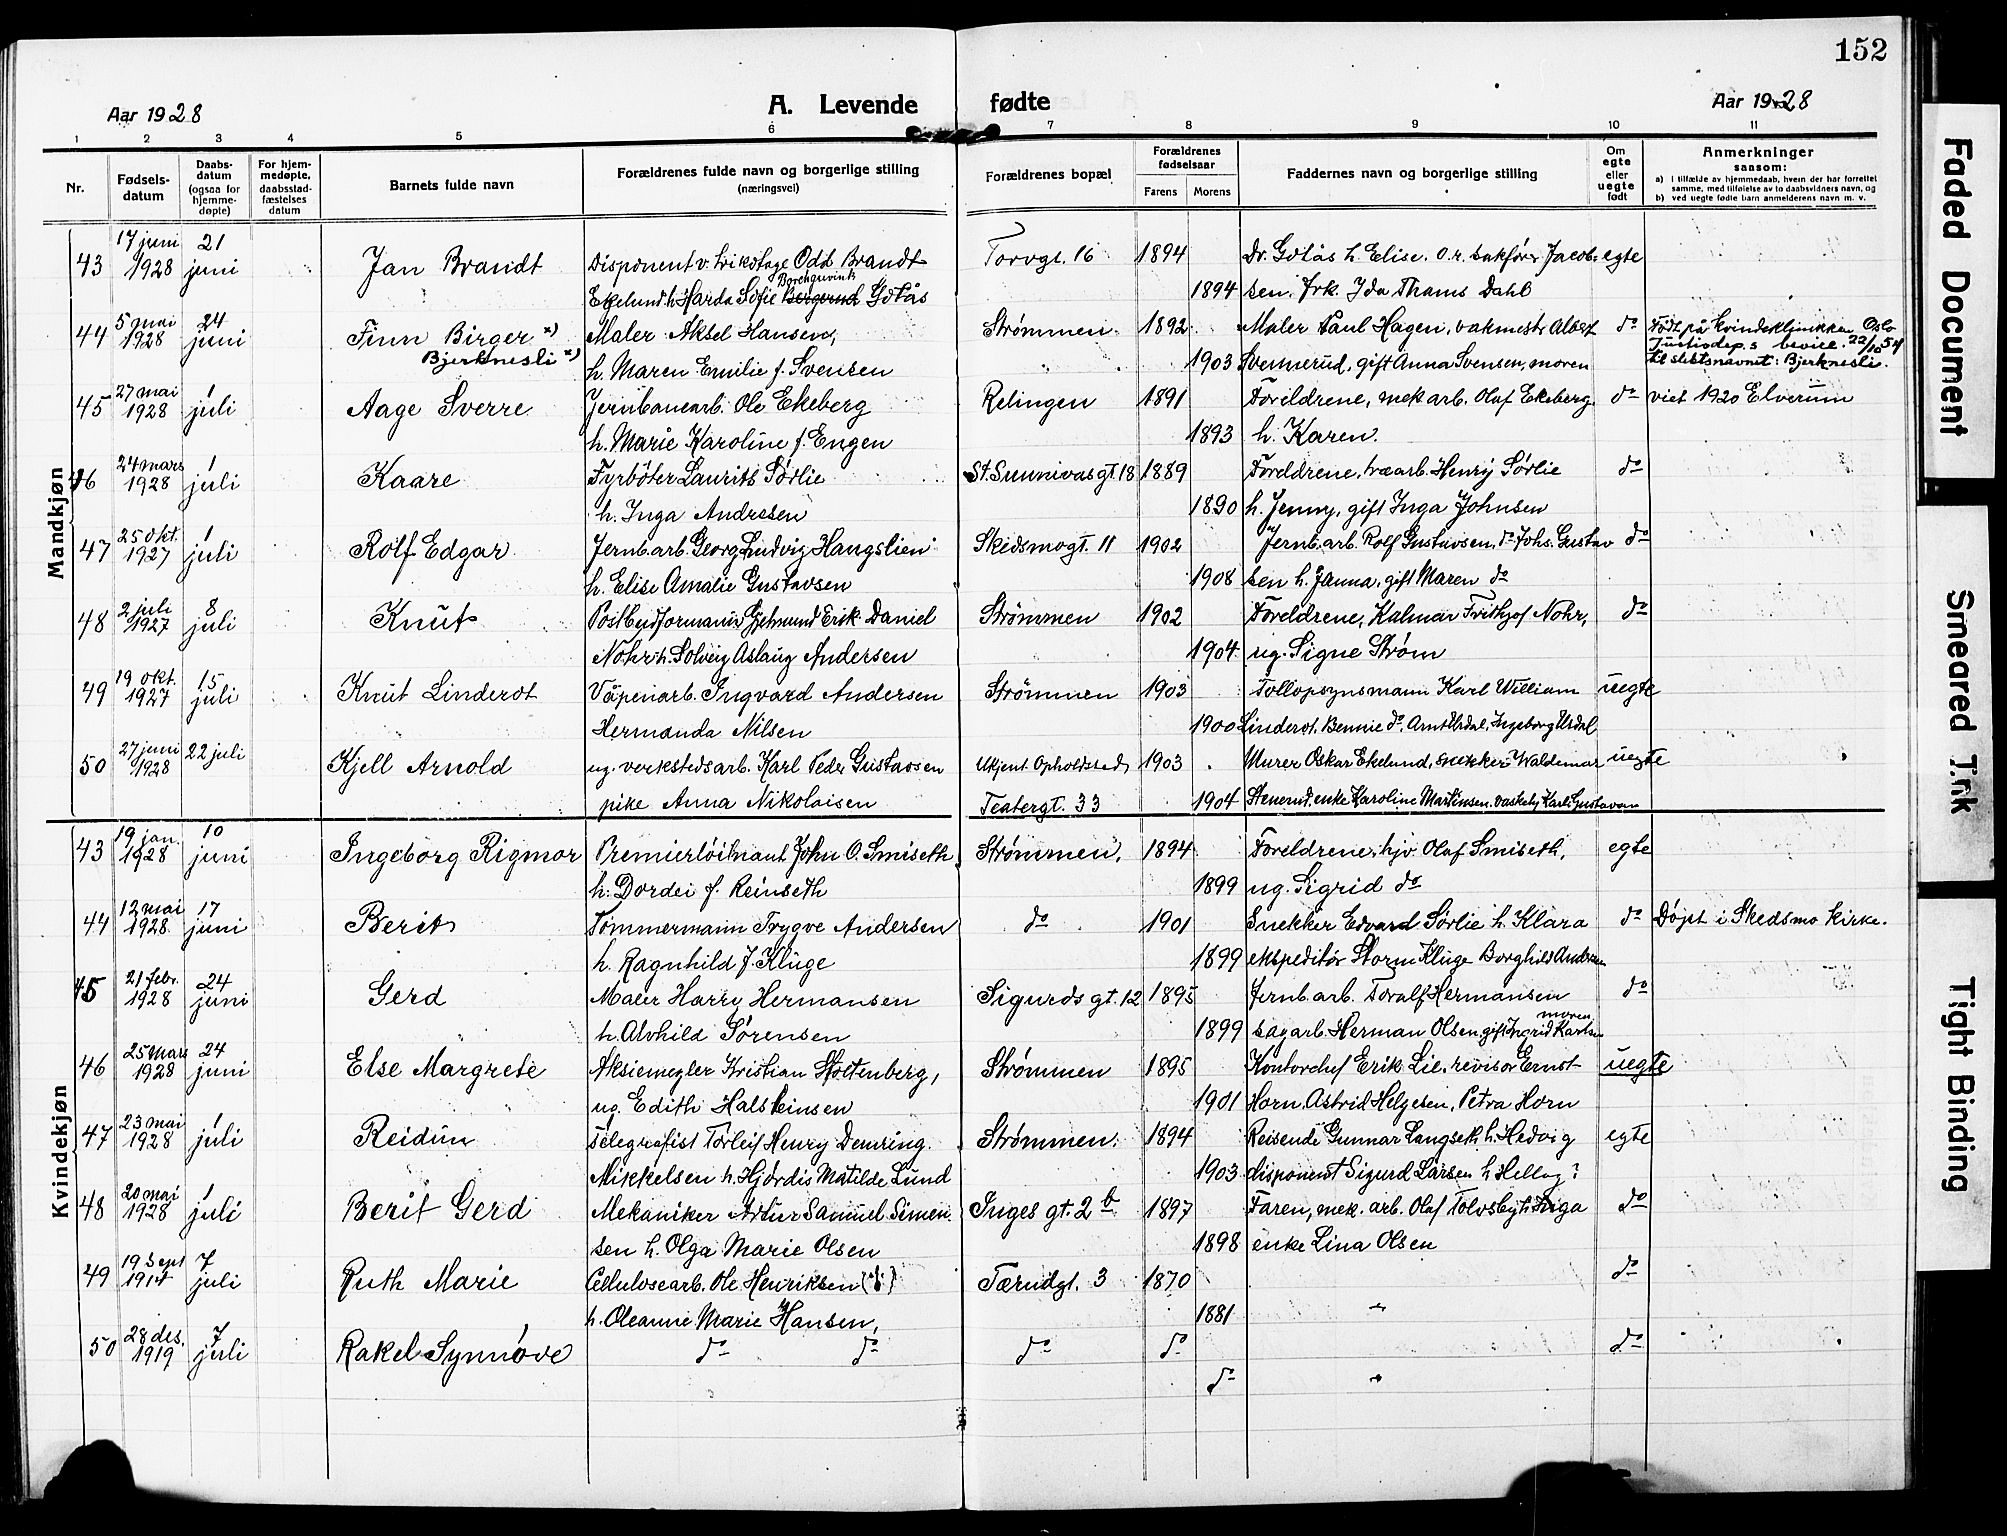 152
Aar 1928
A. Levende fødte
Aar 1928
1 2 3 4 5 6 7 8 9 10 11
Nr.
Fødsels-
datum
Daabs-
datum
(ogsaa for
hjemme-
døpte)
For hjem-
medøpte,
daabsstad-
fæstelses
datum
Barnets fulde navn
Forældrenes fulde navn og borgerlige stilling
(næringsvei)
Forældrenes bopæl
Forældrenes
fødselsaar
Farens Morens
Faddernes navn og borgerlige stilling
Om
egte
eller
uegte
født
Anmerkninger
saasom:
a) i tilfælde av hjemmedaab, hvem der har forrettet
samme, med tilføielse av to daabsvidners navn, og
b) ved uegte fødte barn anmelderens navn m. v.
Mandkjøn
43 17 juni 1928 21 juni Jan Brandt Disponent v. Odd Brandt Torvgt. 16 1894 Dr. Gotås h. Elise. O.r. sakfører Jacob- egte
Borchgrevink
Ekelund h. Harda Sofie Gotås 1894 sen. frk. Ida Thams Dahl
44 5 mai 1928 24 juni Finn Birger x) Maler Aksel Hansen, Strømmen 1892 Maler Paul Hagen, vakmestr. Albert do Født på Kvindeklinikken Oslo
Justisdep.s bevill. 22/10 54
Bjerknesli x) h. Maren Emilie f. Svensen 1903 Svennerud, gift Anna Svensen, moren til slektsnavnet: Bjerknesli.
45 27 mai 1928 1 juli Aage Sverre Jernbanearb. Ole Ekeberg Relingen 1891 Foreldrene, mek arb. Olaf Ekeberg do viet 1920 Elverum
h. Marie Karoline f. Engen 1893 h. Karen.
46 24 mars 1928 1 juli Kaare Fyrbøter Laurits Sørlie St. Sunnivas gt. 18 1889 Foreldrene, træarb. Henry Sørlie do
h. Inga Andresen 1890 h. Jenny, gift Inga Johnsen
47 25 okt. 1927 1 juli Rolf Edgar Jernb. arb. Georg Ludvig Haugslien Skedsmogt. 11 1902 Jernb. arb. Rolf Gustavsen, do Johs. Gustav do
h. Elise Amalie Gustavsen 1908 sen h. Janna, gift Maren do
48 2 juli 1927 8 juli Knut Postbudformann Erik Daniel Strømmen 1902 Foreldrene, Kalmar Frithjof Nohr, do
Nohr h. Solveig Aslaug Andersen 1904 ug. Signe Strøm
49 19 okt. 1927 15 juli Knut Linderot Våpenarb. Ingvard Andersen Strømmen 1903 Tollopsynsmann Karl William uegte
Hermanda Nilsen 1900 Linderot, Bennie do, Arnt Urdal, Ingeborg Urdal
50 27 juni 1928 22 juli Kjell Arnold ug. verkstedsarb. Karl Peder Gustavsen Ukjent Opholdssted 1903 Murer Oskar Ekelund, snekker Waldemar uegte
pike Anna Nikolaisen Teatergt. 33 1904 Stenerud, enke Karoline Martinsen. Karli Gustavsen
Kvindekjøn
43 19 jan. 1928 10 juni Ingeborg Rigmor Premierløitnant John O. Smiseth Strømmen. 1894 Foreldrene, hjv. Olaf Smiseth, egte
h. Dordei f. Reinseth 1899 ug. Sigrid do
44 12 mai 1928 17 juni Berit Tømmermann Trygve Andersen do 1901 Snekker Edvard Sørlie h. Klara do Døpt i Skedsmo kirke.
h. Ragnhild f. Kluge 1899 ekspeditør Storm Kluge Borghild Andersen
45 21 febr. 1928 24 juni Gerd Maler Harry Hermansen Sigurds gt. 12 1895 Jernb. arb. Toralf Hermansen do
moren
h. Alvhild Sørensen 1899 sagarb. Herman Olsen, gift Ingrid Karlsen
46 25 mars 1928 24 juni Else Margrete Aksiemegler Kristian Stoltenberg, Strømmen 1895 Kontorchef Erik Lie, revisor Ernst uegte
ug. Edith Halsteinsen 1901 Horn, Astrid Helgesen, Petra Horn
47 23 mai 1928 1 juli Reidun Telegrafist Torleif Henry Demring Strømmen. 1894 Reisende Gunnar Langseth h. Hedvig egte
Mikkelsen h. Hjørdis Matilde Lund 1903 disponent Sigurd Larsen h. Hellag?
48 20 mai 1928 1 juli Berit Gerd Mekaniker Artur Samuel Simen- Inges gt. 2 b 1897 Faren, mek. arb. Olaf Tolvsby h. Inga do
sen h. Olga Marie Olsen 1898 enke Lina Olsen
49 19 Sept 1914 7 juli Ruth Marie Cellulosearb. Ole Henriksen (†) Tærudgt. 3 1870 do
h. Oleanne Marie Hansen, 1881 "
50 28 des. 1919 7 juli Rakel Synnøve do do do do do
do "
Faded Document
Smeared Ink
Tight Binding